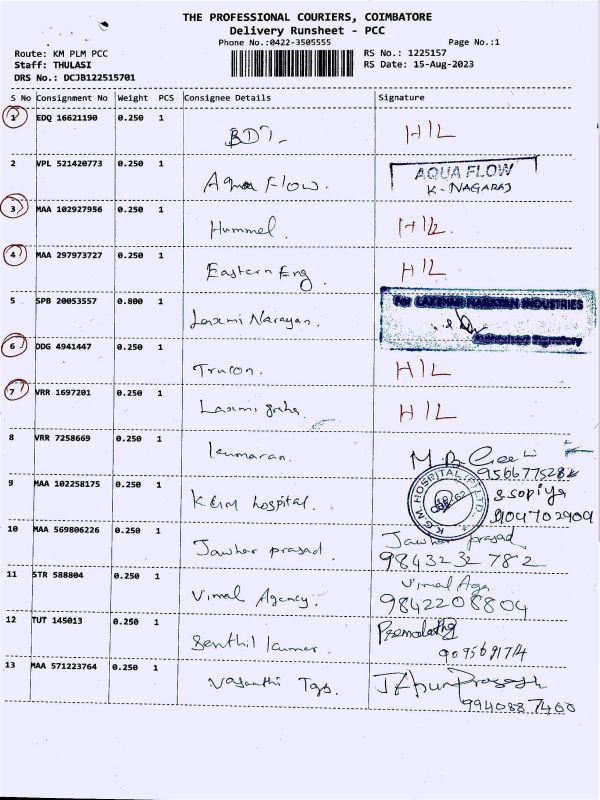 THE PROFESSIONAL COURIERS, COIMBATORE
Delivery Runsheet - PCC
Phone No.:0422-3505555 Page No.:1
Route: KM PLM PCC RS No.: 1225157
Staff: THULASI RS Date: 15-Aug-2023
DRS No.: DCJB122515701
S No Consignment No Weight PCS Consignee Details Signature
1 EDQ 16621190 0.250 1
BDT H/L
2 VPL 521420773 0.250 1
Aqua Flow. AQUA FLOW
K. NAGARAJ
3 MAA 102927956 0.250 1
Hummel. H/L
4 MAA 297973727 0.250 1
Eastern Eng H/L
5 SPB 20053557 0.800 1 For LAKSHMI NARAYAN INDUSTRIES
Laxmi Narayan.
Authorised Signatory
6 DDG 4941447 0.250 1
Trucon. H/L
7 VRR 1697201 0.250 1
Laxmi H/L
8 VRR 7258669 0.250 1
Kumaran.
9566775282
9 MAA 102258175 0.250 1 K.G.M. HOSPITAL (P) LTD.
KGM hospital. S. Sopiya
904702909
10 MAA 569806226 0.250 1
Jawhar prasad. Jawhar prasad
9843232782
11 STR 588804 0.250 1
Vimal Agency. Vimal Age
9842208804
12 TUT 145013 0.250 1
Senthil Kumar.
13 MAA 571223764 0.250 1
Vasanthi Tgs.
9940887460